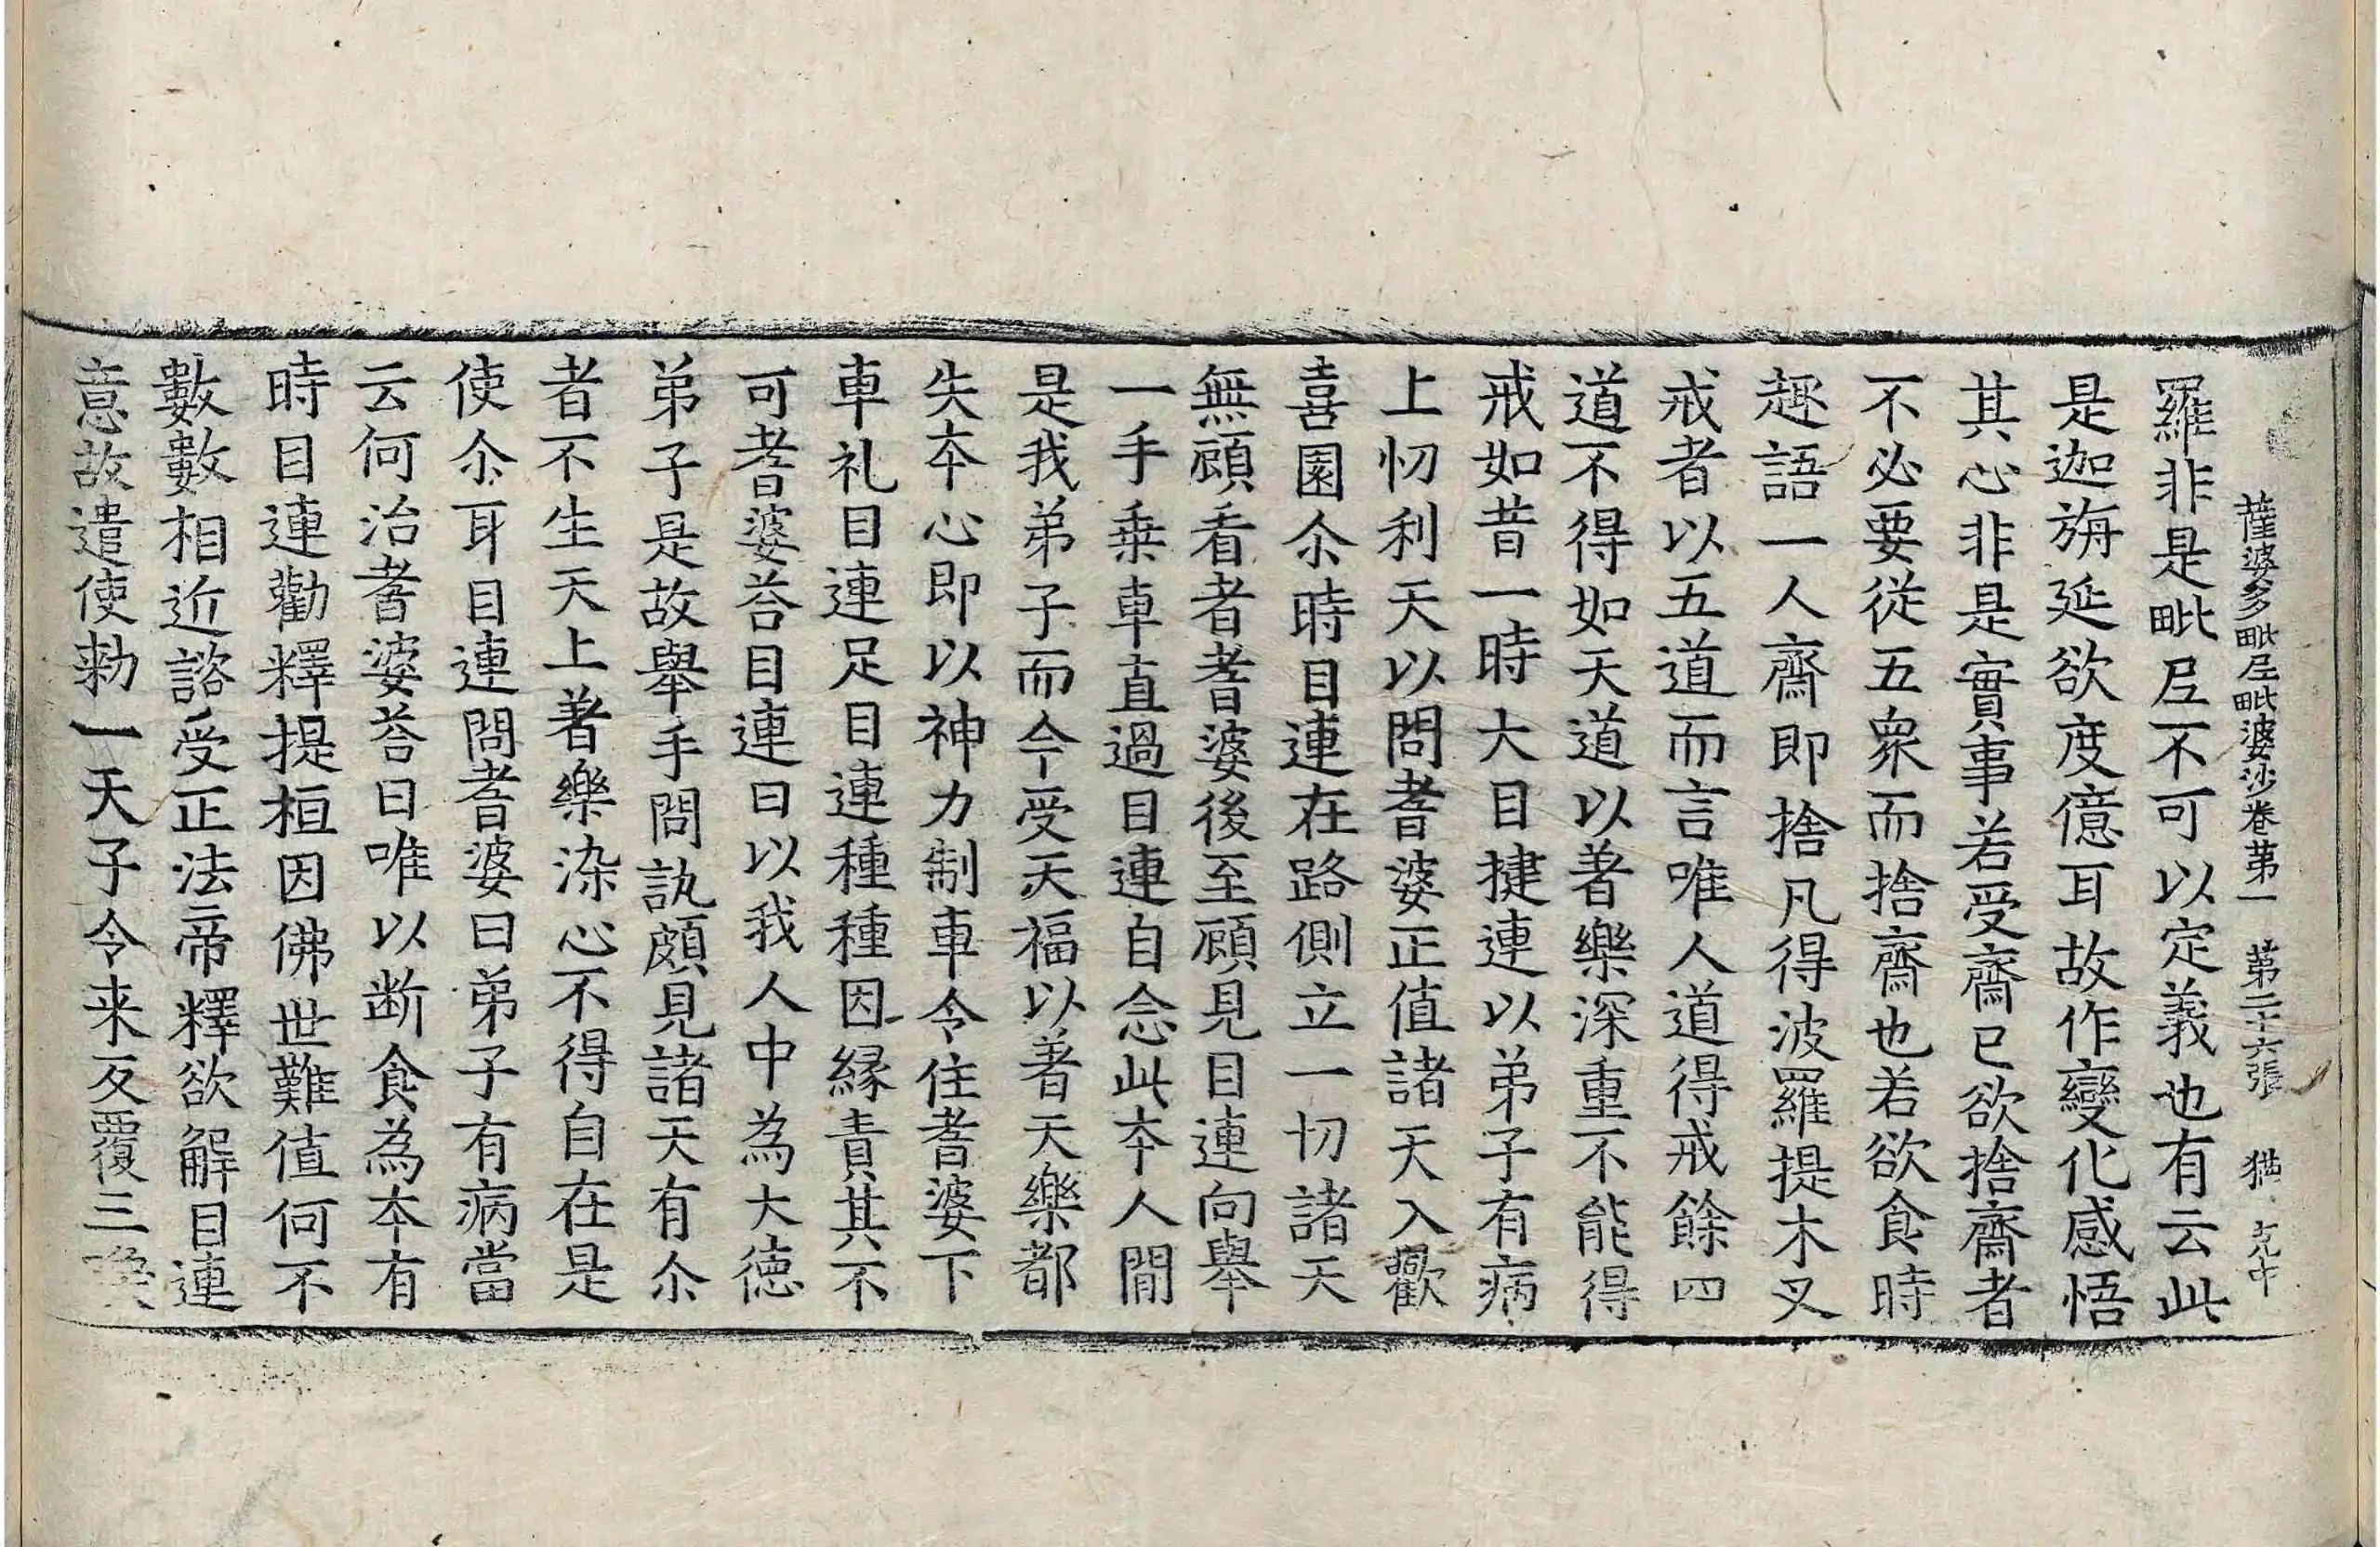 薩婆多毗尼毗婆沙卷第一　第二十六張　猶　克中
羅非是毗尼不可以定義也有云此
是迦旃延欲度億耳故作變化感悟
其心非是實事若受齋已欲捨齋者
不必要從五衆而捨齋也若欲食時
趣語一人齋即捨凡得波羅提木叉
戒者以五道而言唯人道得戒餘四
道不得如天道以著樂深重不能得
戒如昔一時大目揵連以弟子有病
上忉利天以問耆婆正值諸天入歡
喜園尒時目連在路側立一切諸天
無顧看者耆婆後至顧見目連向舉
一手乗車直過目連自念此夲人間
是我弟子而今受天福以著天樂都
失夲心即以神力制車令住耆婆下
車礼目連足目連種種因縁責其不
可耆婆荅目連曰以我人中為大徳
弟子是故舉手問訊頗見諸天有尒
者不生天上著樂染心不得自在是
使尒耳目連問耆婆曰弟子有病當
云何治耆婆荅曰唯以断食為夲有
時目連勸釋提桓因佛世難值何不
數數相近諮受正法帝釋欲解目連
意故遣使勑一天子令来反覆三喚